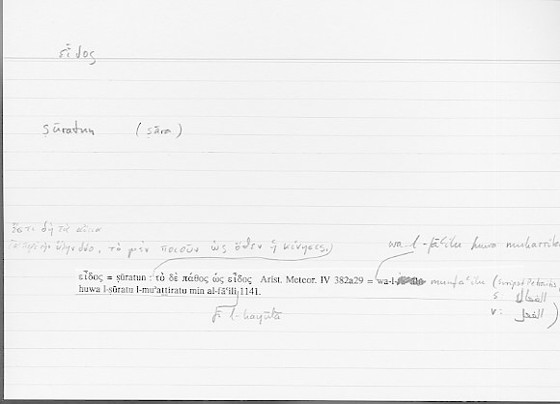 εἶδος
ṣūratun (ṣāra)
ἔστι δὴ τὰ αἴτια
δύο, τὸ μὲν ποιοῦν ὡς ὅθεν ἡ κίνησις,)
wa l-fāʿilu huwa
εἶδος = ṣūratun : τὸ δὲ πάθος ὡς εἶδος Arist. Meteor. IV 382a29 = wa-l- munfaʿilu (script
huwa l-ṣūratu l-muʾaṯṯiratu min al-fāʿili 1141.
s الفعال
v: الفعل )
fī l-hayūlā